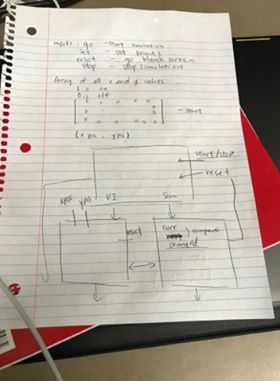 inputs: go - start simulation
set - set points
reset - go blank screen
stop - stop simulation
Array of all x and y values
1 is on
0 is off
- start
(x pos, y pos)
start/stop
reset
xpos ypos UI Sim
reset
curr
compare
changed